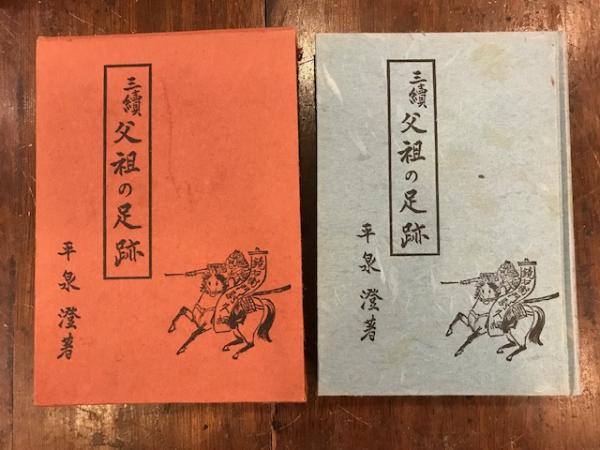 三續 父祖の足跡
平泉 澄著
三續 父祖の足跡
平泉 澄著